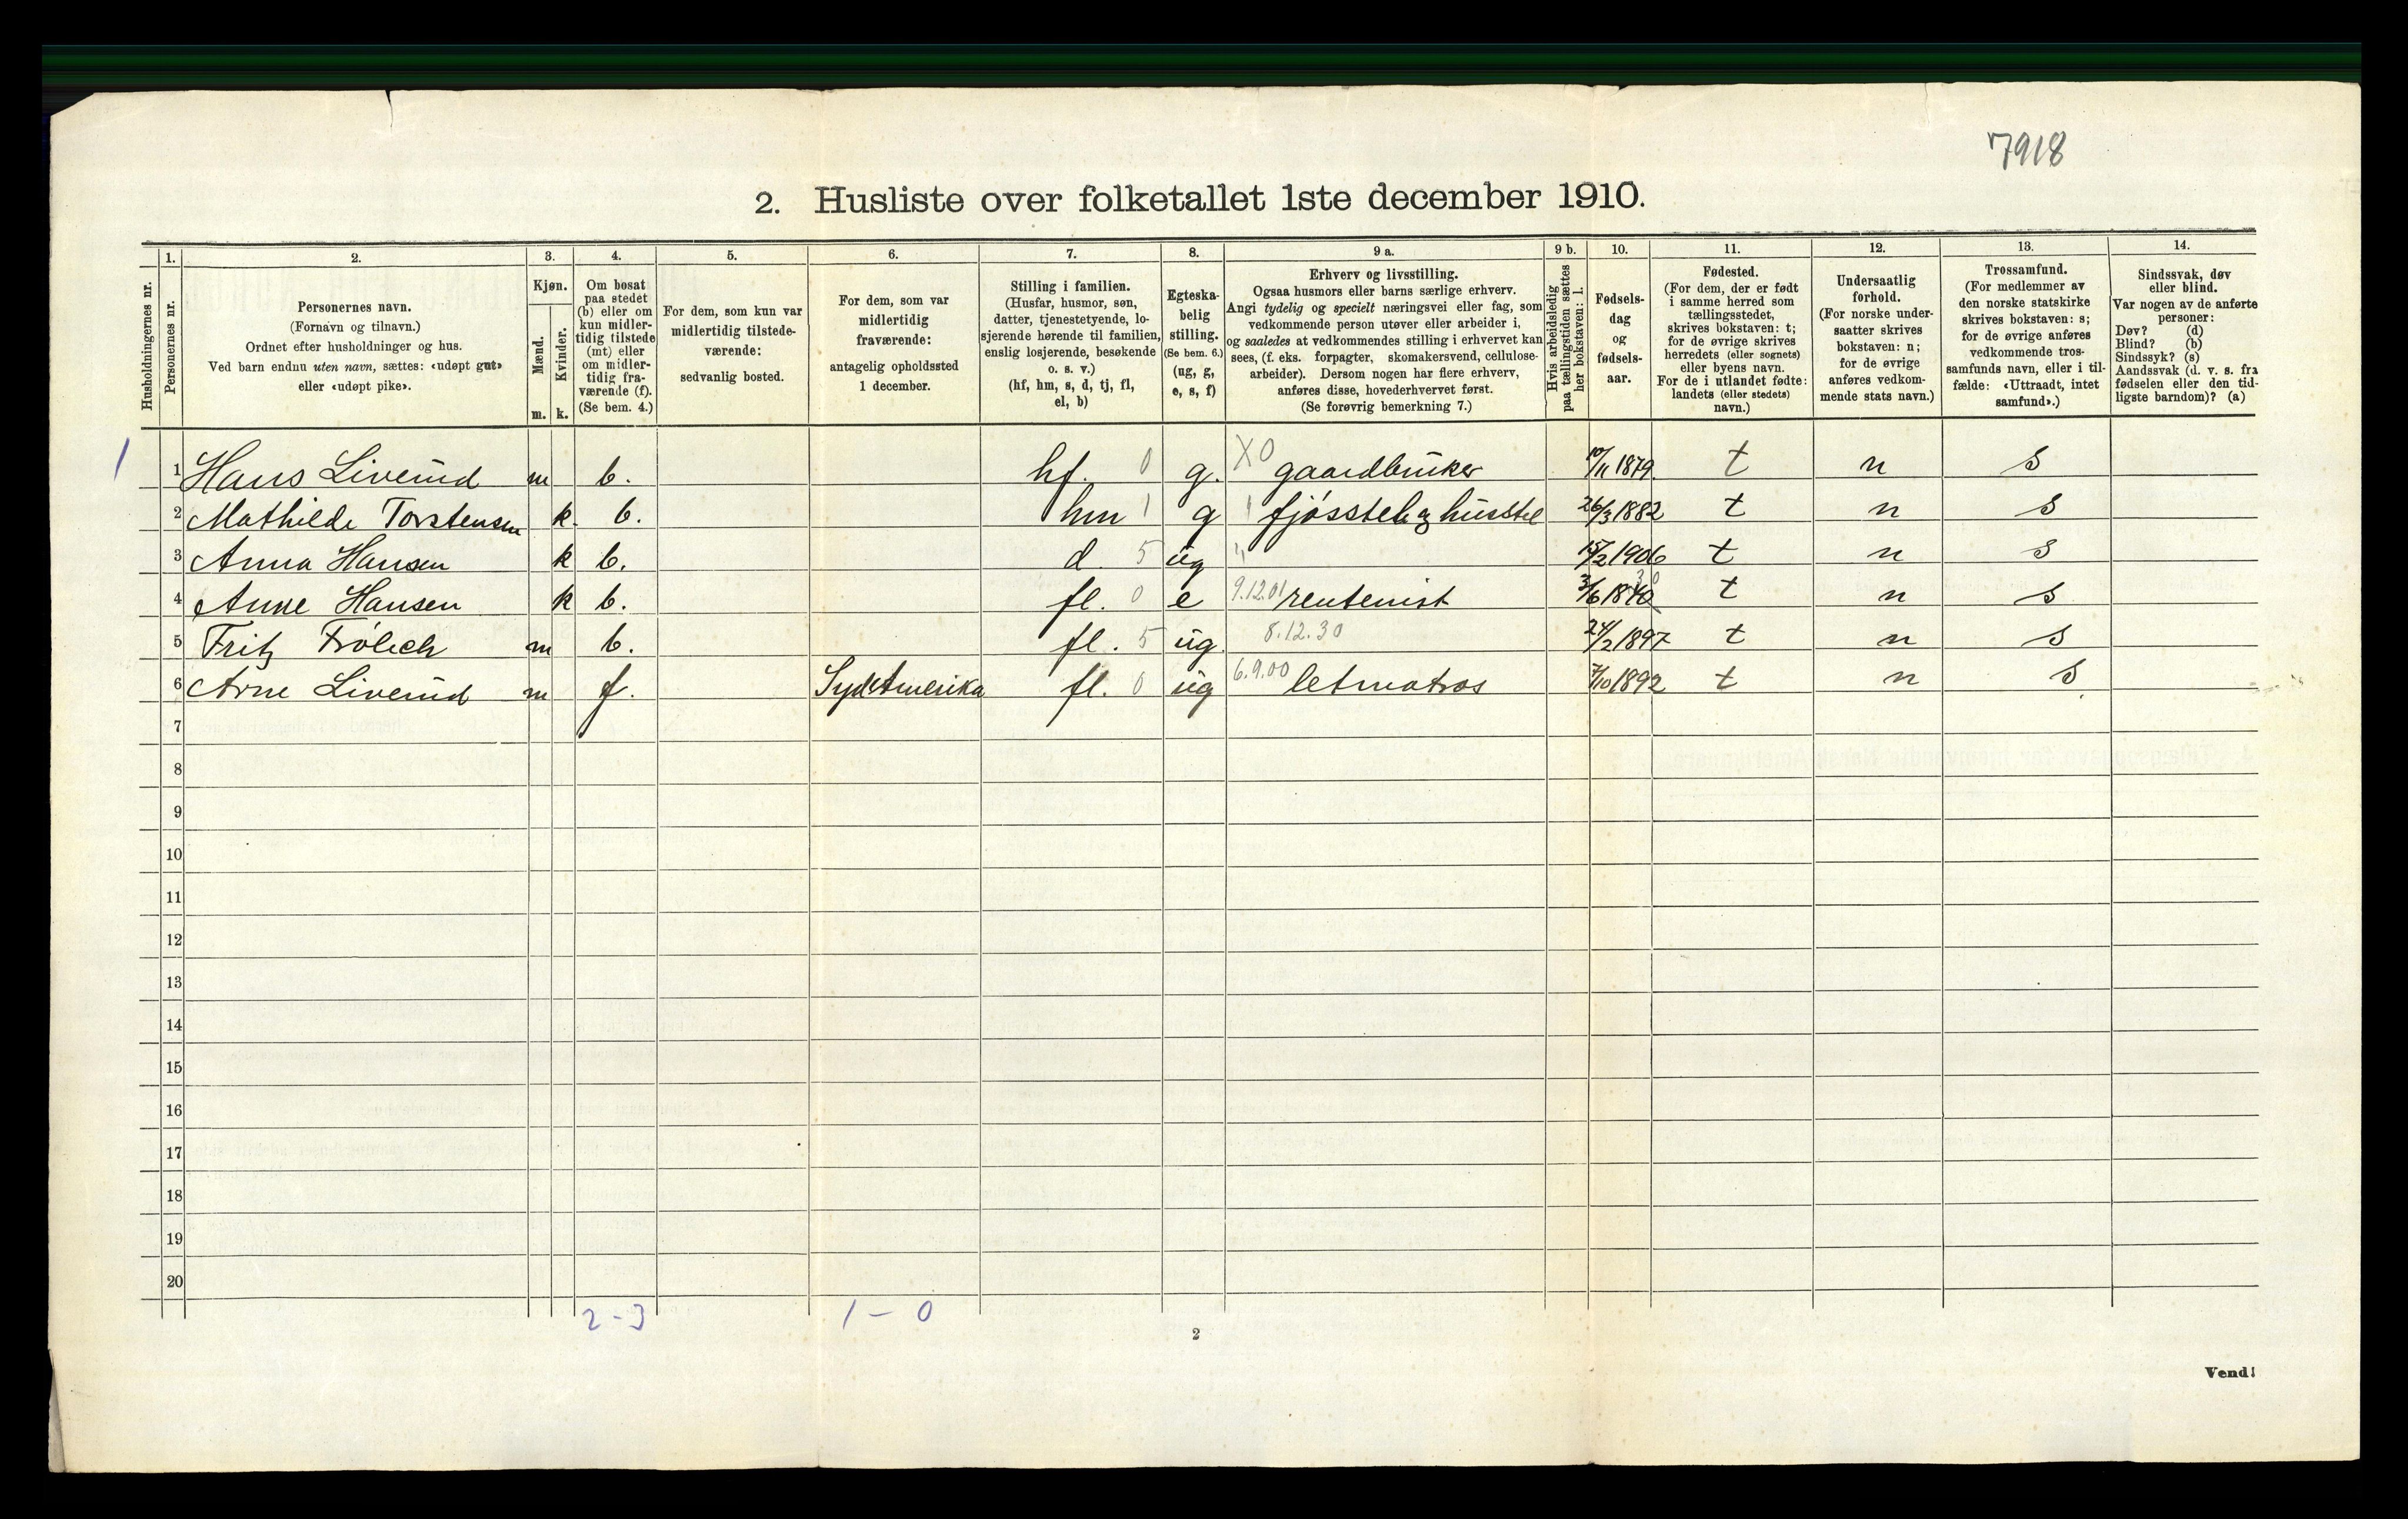 7918
2. Husliste over folketallet 1ste december 1910.
1. 2. 3. 4. 5. 6. 7. 8. 9 a. 9 b. 10. 11. 12. 13. 14.
Husholdningernes nr.
Personernes nr.
Personernes navn.
(Fornavn og tilnavn.)
Ordnet efter husholdninger og hus.
Ved barn endnu uten navn, sættes: «udøpt gut»
eller «udøpt pike».
Kjøn.
Mænd.
Kvinder.
m. k.
Om bosat
paa stedet
(b) eller om
kun midler-
tidig tilstede
(mt) eller
om midler-
tidig fra-
værende (f).
(Se bem. 4.)
For dem, som kun var
midlertidig tilstede-
værende:
sedvanlig bosted.
For dem, som var
midlertidig
fraværende:
antagelig opholdssted
1 december.
Stilling i familien.
(Husfar, husmor, søn,
datter, tjenestetyende, lo-
sjerende hørende til familien,
enslig losjerende, besøkende
o. s. v.)
(hf, hm, s, d, tj, fl,
el, b)
Egteska-
belig
stilling.
(Se bem. 6.)
(ug, g,
e, s, f)
Erhverv og livsstilling.
Ogsaa husmors eller barns særlige erhverv.
Angi tydelig og specielt næringsvei eller fag, som
vedkommende person utøver eller arbeider i,
og saaledes at vedkommendes stilling i erhvervet kan
sees, (f. eks. forpagter, skomakersvend, cellulose-
arbeider). Dersom nogen har flere erhverv,
anføres disse, hovederhvervet først.
(Se forøvrig bemerkning 7.)
Hvis arbeidsledig
paa tællingstiden sættes
her bokstaven: l.
Fødsels-
dag
og
fødsels-
aar.
Fødested.
(For dem, der er født
i samme herred som
tællingsstedet,
skrives bokstaven: t;
for de øvrige skrives
herredets (eller sognets)
eller byens navn.
For de i utlandet fødte:
landets (eller stedets)
navn.)
Undersaatlig
forhold.
(For norske under-
saatter skrives
bokstaven: n;
for de øvrige
anføres vedkom-
mende stats navn.)
Trossamfund.
(For medlemmer av
den norske statskirke
skrives bokstav: s;
for de øvrige anføres
vedkommende tros-
samfunds navn, eller i til-
fælde: «Uttraadt, intet
samfund».)
Sindssvak, døv
eller blind.
Var nogen av de anførte
personer:
Døv? (d)
Blind? (b)
Sindssyk? (s)
Aandssvak (d. v. s. fra
fødselen eller den tid-
ligste barndom)? (a)
1 1 Hans Liverud m b. hf. 0 g. X0 gaardbruker 10/11 1879. t n s
2 Mathilde Torstensen k. b. hm 1 g fjøsstel og husstel 26/3 1882 t n s
3 Anna Hansen k b. d. 5 ug " 15/2 1906 t n s
4 Anne Hansen k b. fl. 0 e 9.12.01 rentenist 3/6 1840 30 t n s
5 Fritz Frölich m b. fl. 5 ug. 8.12.30 24/2 1897 t n s
6 Arne Liverud m f. Syd Amerika fl. 0 ug 6.9.00 letmatros 7/10 1892 t n s
7
8
9
10
11
12
13
14
15
16
17
18
19
20
2 - 3 1 - 0
2
Vend!